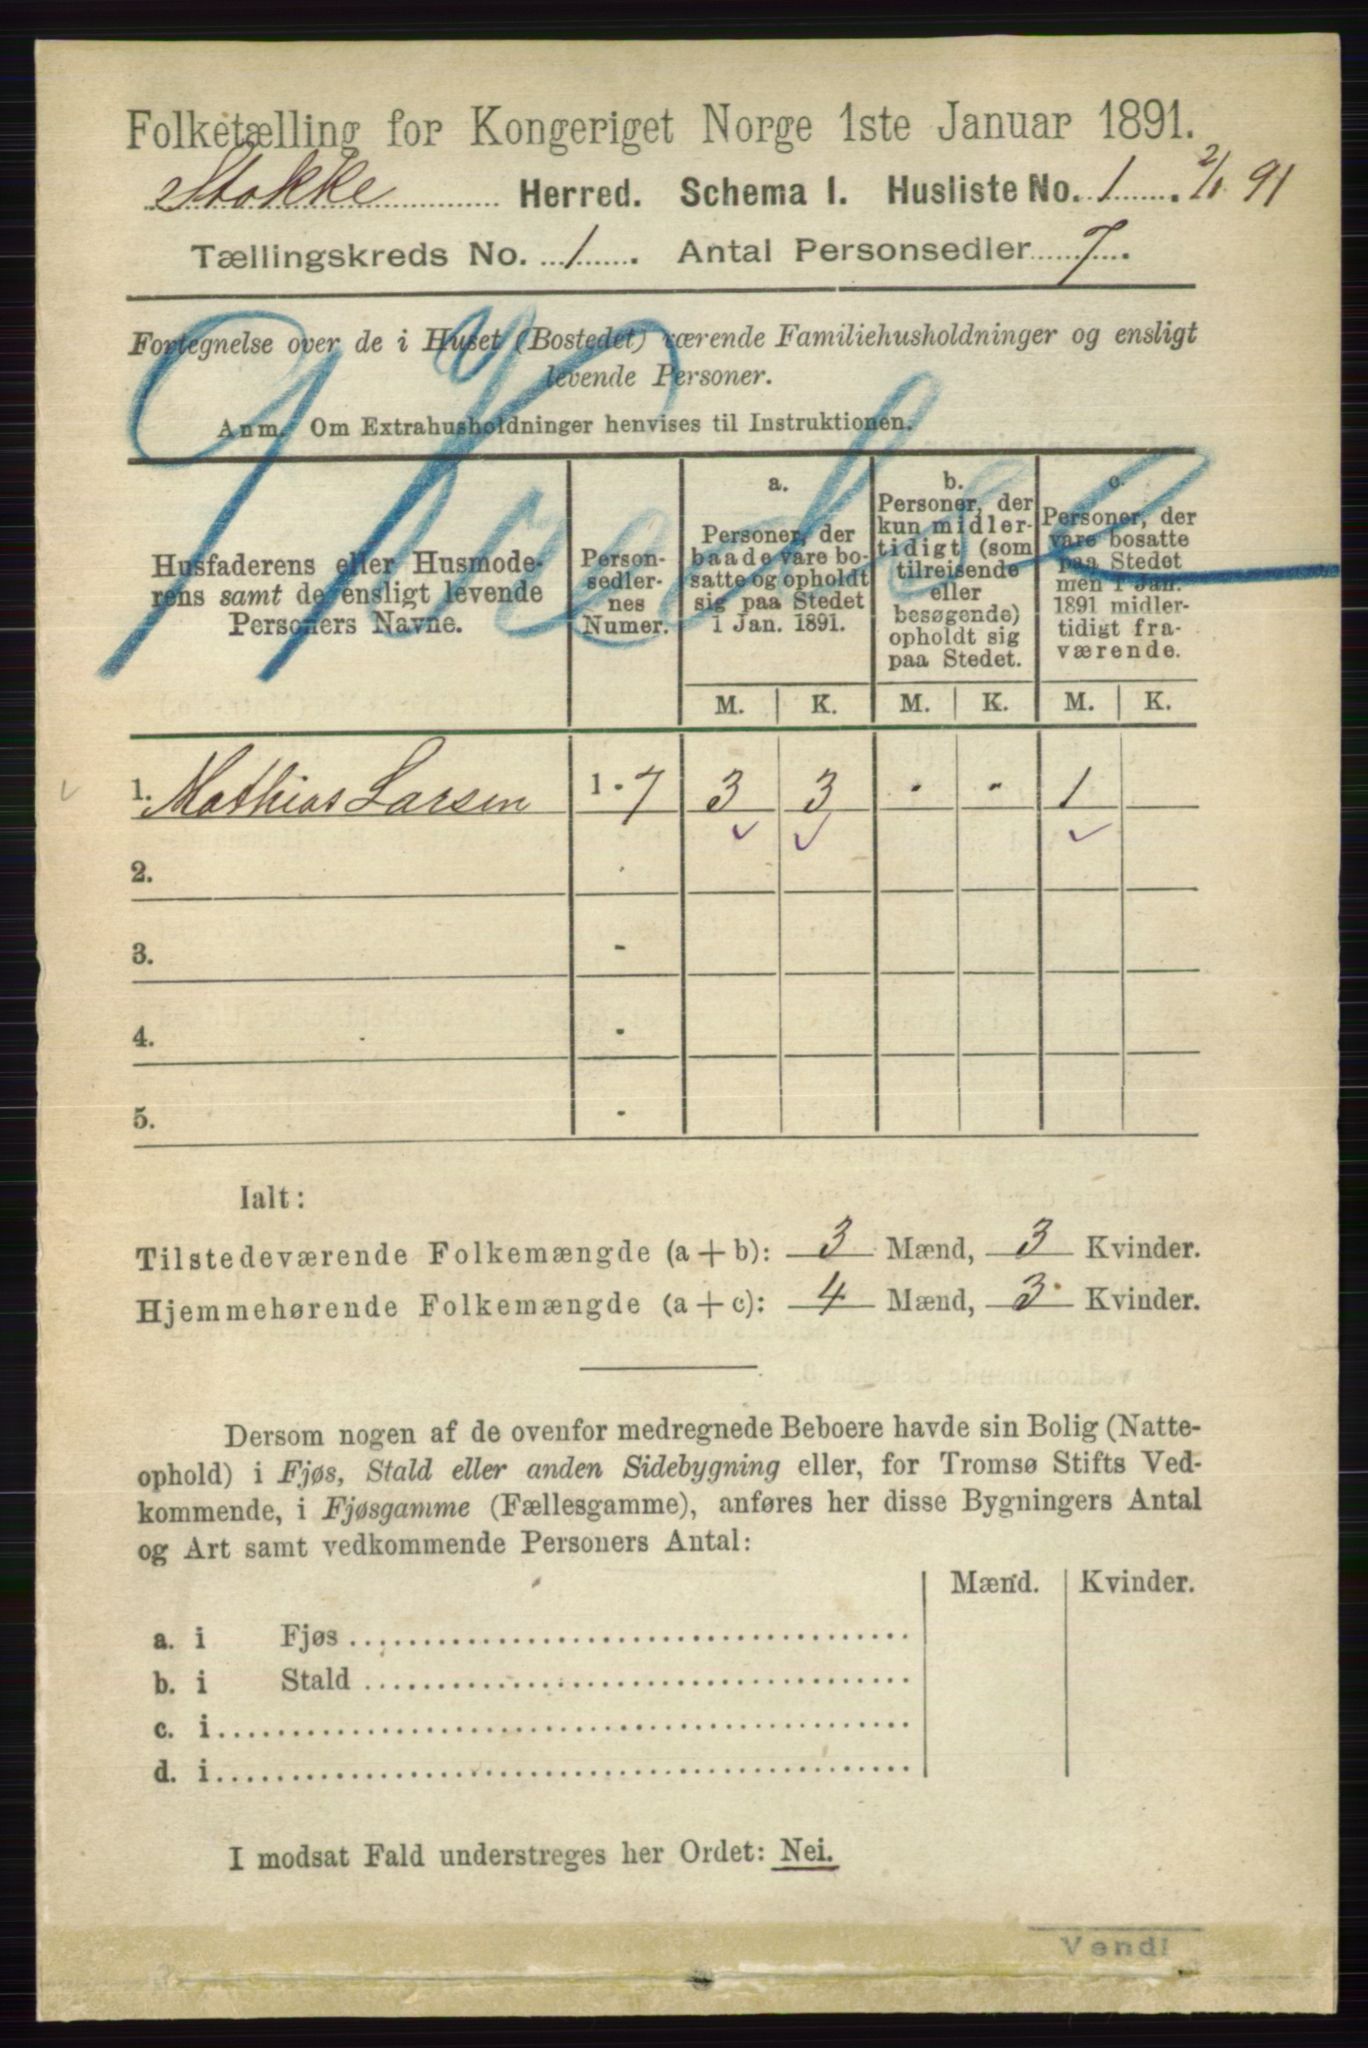 Folketælling for Kongeriget Norge 1ste Januar 1891.
Stokke Herred. Schema I. Husliste No. 1. 2/1 91
Tællingskreds No. 1. Antal Personsedler 7.
Fortegnelse over de i Huset (Bostedet) værende Familiehusholdninger og ensligt
levende Personer.
Anm. Om Extrahusholdninger henvises til Instruktionen.
Husfaderens eller Husmode-
rens samt de ensligt levende
Personers Navne.
Person-
sedler-
nes
Numer.
a.
Personer, der
baade vare bo-
satte og opholdt
sig paa Stedet
1 Jan. 1891.
b.
Personer, der
kun midler-
tidigt (som
tilreisende
eller
besøgende)
opholdt sig
paa Stedet.
c.
Personer, der
vare bosatte
paa Stedet
men 1 Jan.
1891 midler-
tidigt fra-
værende.
M. K. M. K. M. K.
1. Mathias Larsen 1 - 7 3 3 - - 1
2. -
3. -
4. -
5. -
Ialt:
Tilstedeværende Folkemængde (a + b): 3 Mænd, 3 Kvinder.
Hjemmehørende Folkemængde (a + c): 4 Mænd, 3 Kvinder.
Dersom nogen af de ovenfor medregnede Beboere havde sin Bolig (Natte-
ophold) i Fjøs, Stald eller anden Sidebygning eller, for Tromsø Stifts Ved-
kommende, i Fjøsgamme (Fællesgamme), anføres her disse Bygningers Antal
og Art samt vedkommende Personers Antal:
Mænd. Kvinder.
a. i Fjøs
b. i Stald
c. i
d. i
I modsat Fald understreges her Ordet: Nei.
Vend!